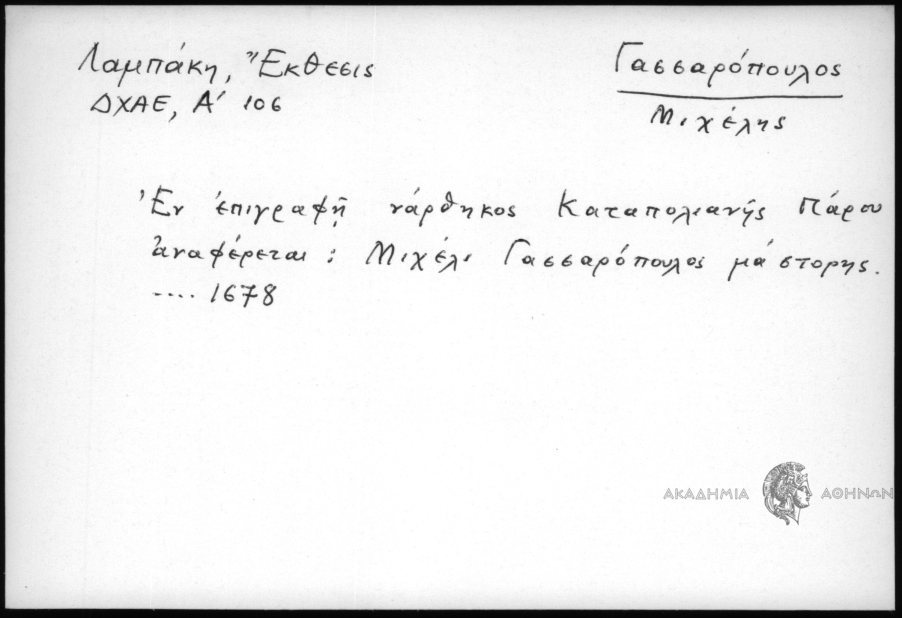 Λαμπάκη, Ἔκθεσις
ΔΧΑΕ, Α' 106
Γασσαρόπουλος
Μιχέλης
Ἐν ἐπιγραφῇ νάρθηκος Καταπολιανῆς Πάρου
ἀναφέρεται : Μιχέλι Γασσαρόπουλος μάστορης.
.... 1678
ΑΚΑΔΗΜΙΑ ΑΘΗΝΩΝ